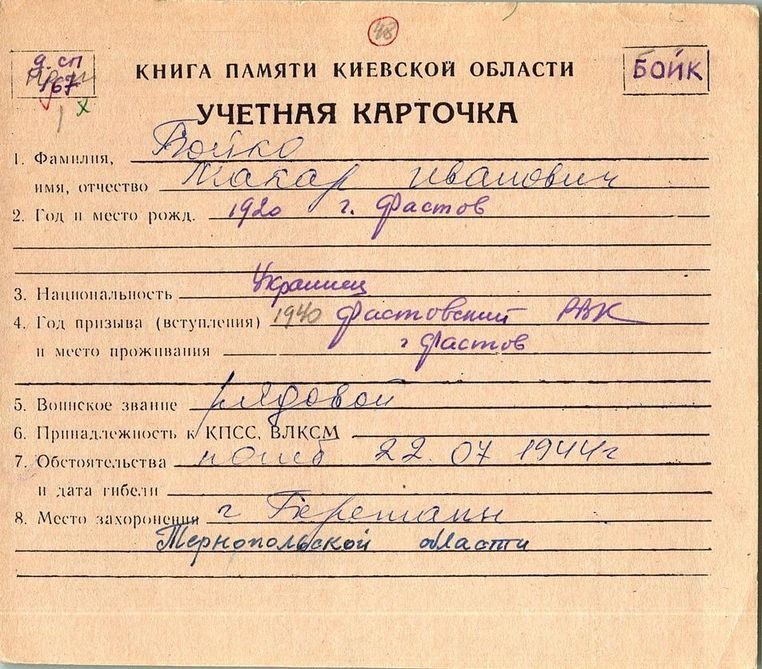 48
9. сп
167
БОЙК
КНИГА ПАМЯТИ КИЕВСКОЙ ОБЛАСТИ
УЧЕТНАЯ КАРТОЧКА
1. Фамилия, Бойко
имя, отчество Макар Иванович
2. Год и место рожд. 1920 г. Фастов
3. Национальность Украинец
4. Год призыва (вступления) 1940 Фастовский РВК
и место проживания г Фастов
5. Воинское звание рядовой
6. Принадлежность к КПСС, ВЛКСМ
7. Обстоятельства погиб 22.07 1944г
и дата гибели
8. Место захоронения г Бережаны
Тернопольской области